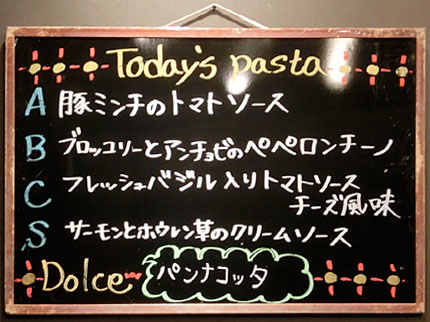 Today's pasta
A 豚ミンチのトマトソース
B ブロッコリーとアンチョビのペペロンチーノ
C フレッシュバジル入りトマトソース
チーズ風味
S サーモンとホウレン草のクリームソース
Dolce パンナコッタ